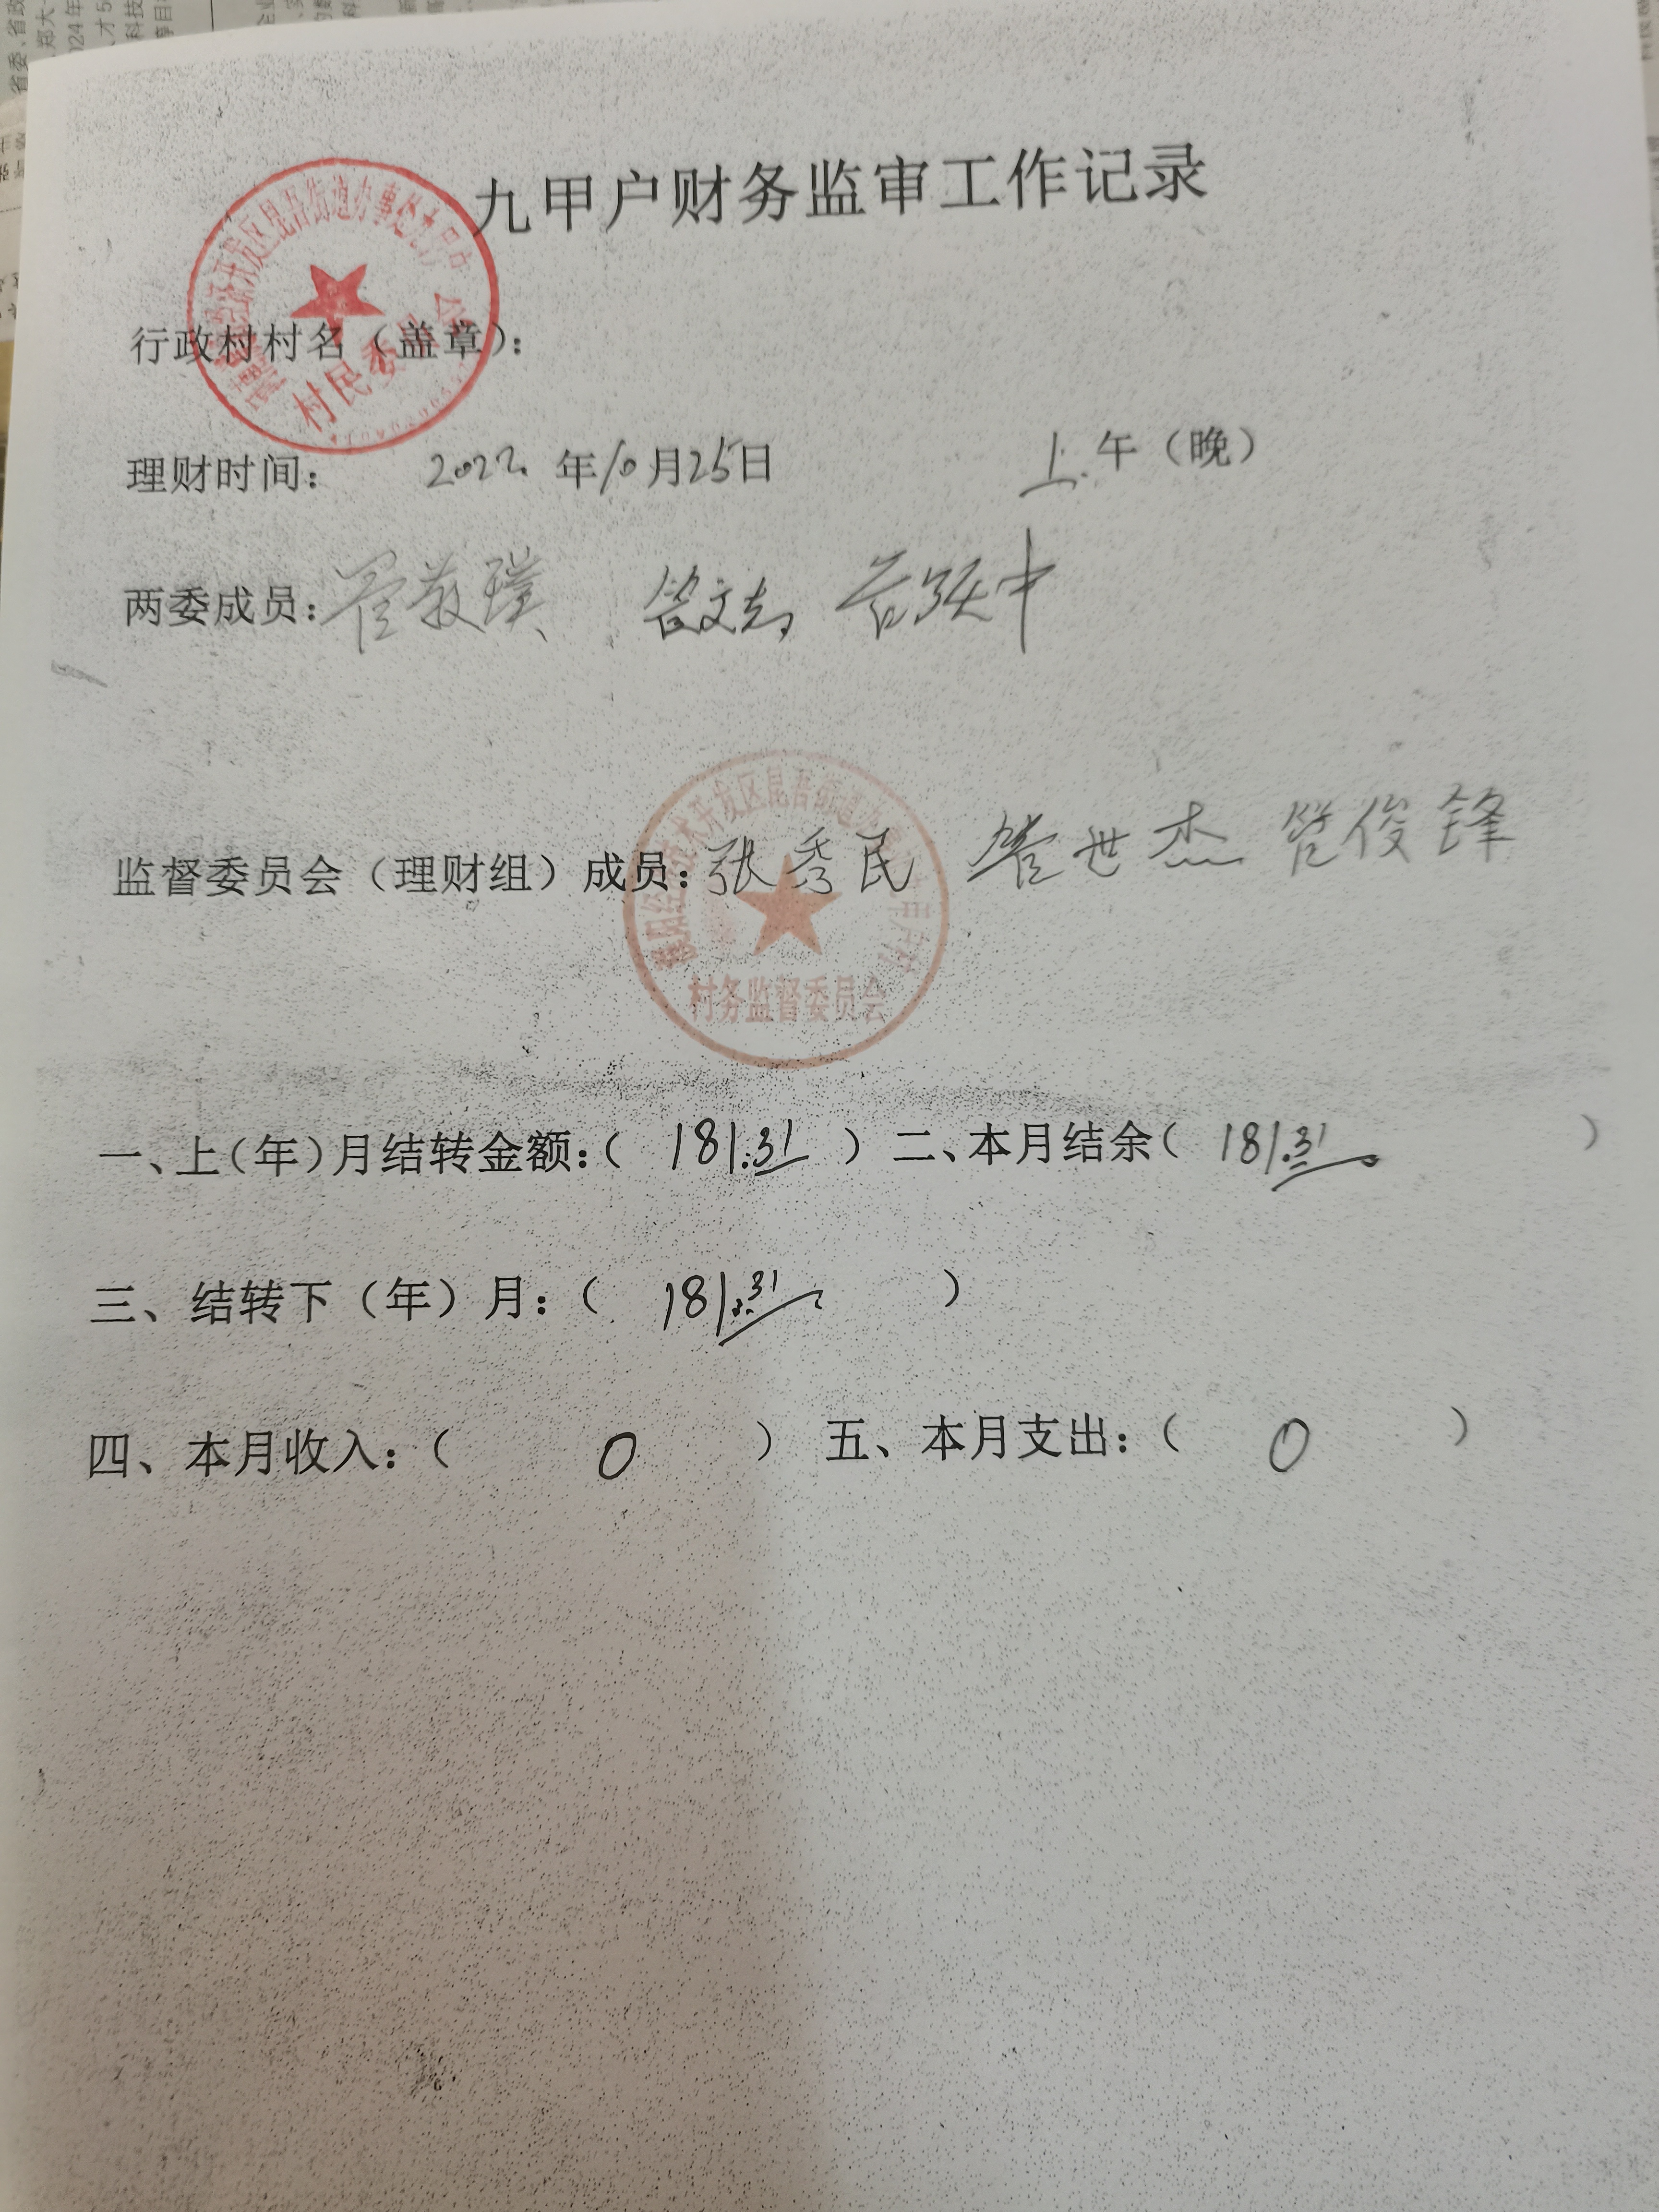 九甲户财务监审工作记录
行政村村名（盖章）：
村民委员会
理财时间： 2022 年10月25日 上午（晚）
两委成员：
监督委员会（理财组）成员：张秀民 管世杰 管俊锋
村务监督委员会
一、上（年）月结转金额：（ 181.31 ）二、本月结余（ 181.31 ）
三、结转下（年）月：（ 181.31 ）
四、本月收入：（ 0 ） 五、本月支出：（ 0 ）